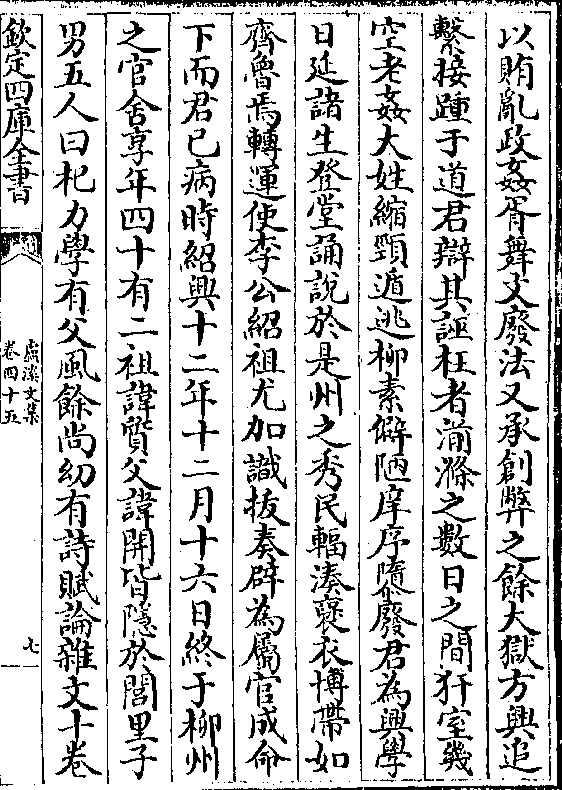 以賄亂政姦胥舞文廢法又承創弊之餘大獄方興追
繫接踵于道君辯其誣枉者湔滌之數日之間犴室幾
空老姦大姓縮頸遁逃柳素僻陋庠序隳廢君為興學
日延諸生登堂誦說於是州之秀民輻湊裒衣博帶如
齊魯焉轉運使李公紹祖尤加識拔奏辟為屬官成命
下而君已病時紹興十二年十二月十六日終于柳州
之官舍享年四十有二祖諱質父諱開皆隱於閭里子
男五人曰杞力學有父風餘尚幼有詩賦論雜文十卷
欽定四庫全書
盧溪文集
卷四十五
七